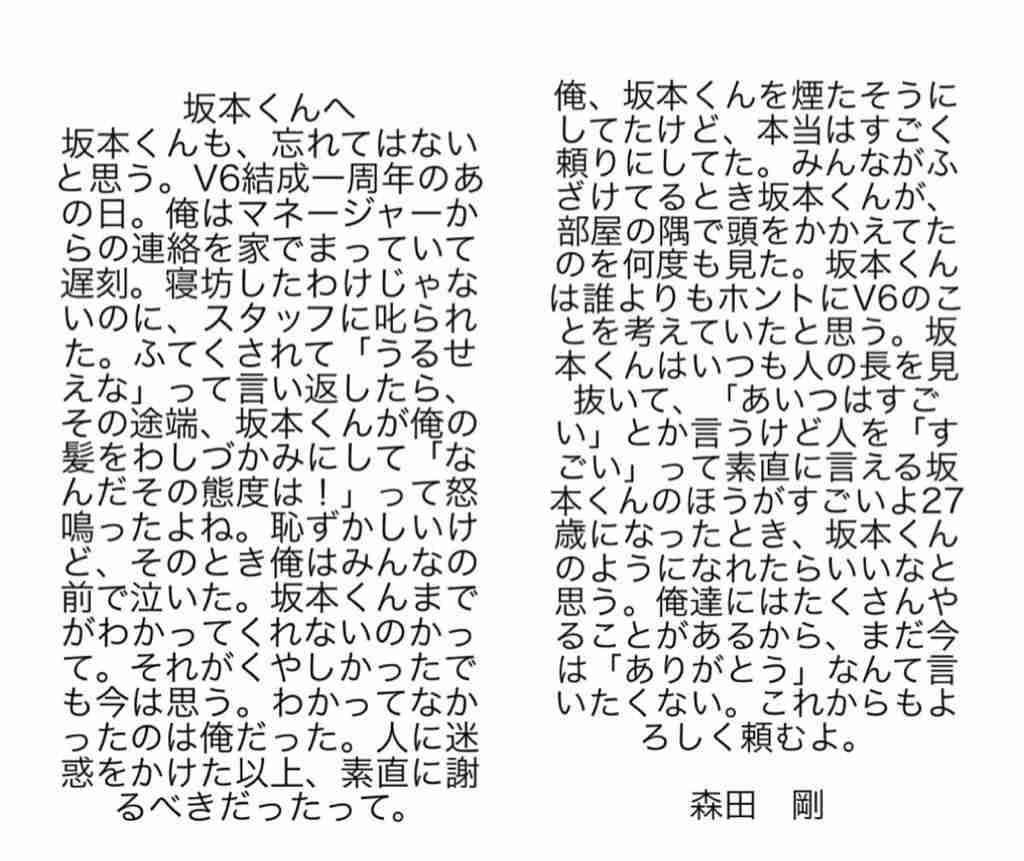 坂本くんへ
坂本くんも、忘れてはない
と思う。V6結成一周年のあ
の日。俺はマネージャーか
らの連絡を家でまっていて
遅刻。寝坊したわけじゃな
いのに、スタッフに叱られ
た。ふてくされて「うるせ
えな」って言い返したら、
その途端、坂本くんが俺の
髪をわしづかみにして「な
んだその態度は！」って怒
鳴ったよね。恥ずかしいけ
ど、そのとき俺はみんなの
前で泣いた。坂本くんまで
がわかってくれないのかっ
て。それがくやしかったで
も今は思う。わかってなか
ったのは俺だった。人に迷
惑をかけた以上、素直に謝
るべきだったって。
俺、坂本くんを煙たそうに
してたけど、本当はすごく
頼りにしてた。みんながふ
ざけてるとき坂本くんが、
部屋の隅で頭をかかえてた
のを何度も見た。坂本くん
は誰よりもホントにV6のこ
とを考えていたと思う。坂
本くんはいつも人の長を見
抜いて、「あいつはすご
い」とか言うけど人を「す
ごい」って素直に言える坂
本くんのほうがすごいよ27
歳になったとき、坂本くん
のようになれたらいいなと
思う。俺達にはたくさんや
ることがあるから、まだ今
は「ありがとう」なんて言
いたくない。これからもよ
ろしく頼むよ。
森田　剛